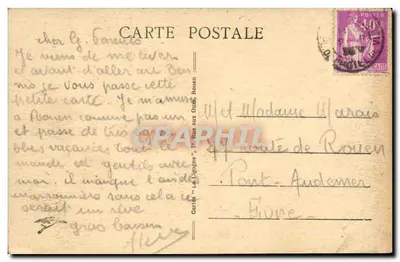 CARTE POSTALE
cher G. Parrain
Je viens de me lever
avant d'aller au Ten
nis je vous passe cette
petite carte. Je m'amuse
à Rouen comme pas un
et passe de très
obes vacances Tout le
monde est gentils avec
moi. il manque
sans cela ce
serait un rêve
gros baisers
Met Madame Marais
route de Rouen
Pont-Audemer
Eure
POSTES
CARPHIL
Rouen